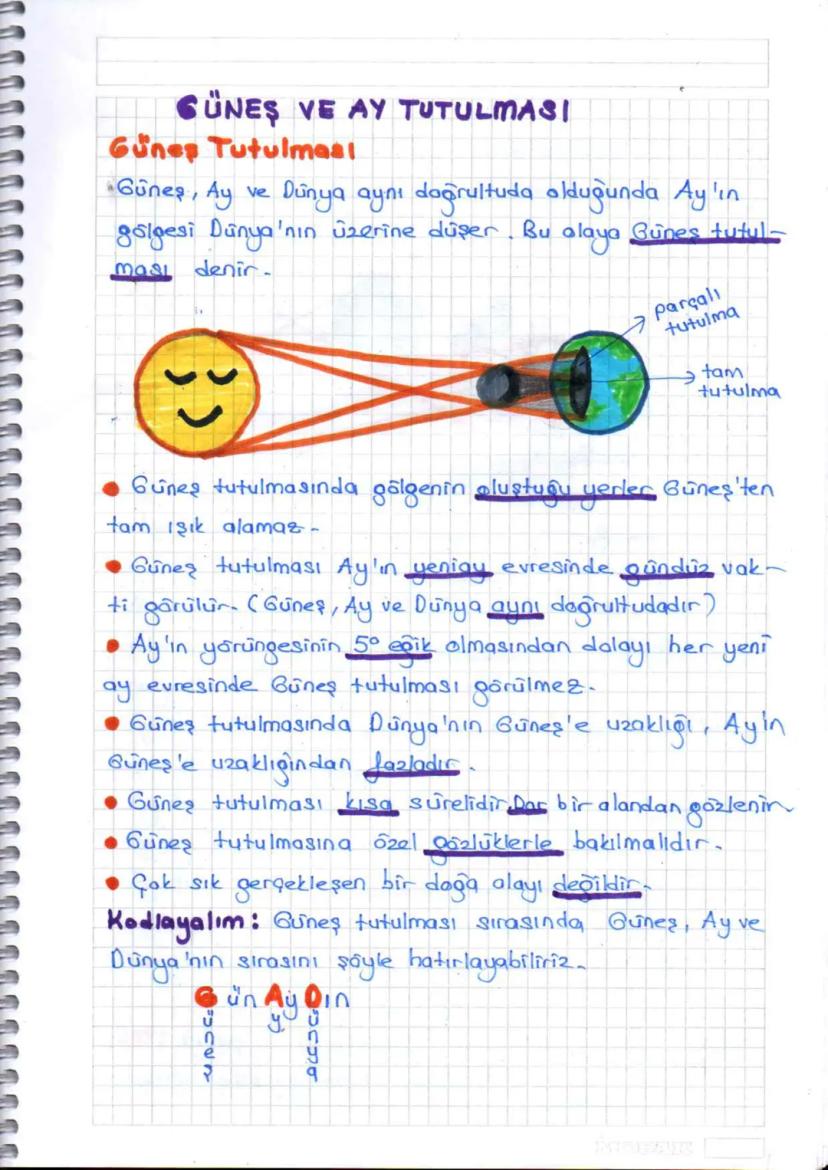 GÜNEŞ VE AY TUTULMASI
Güneş Tutulması
Güneş, Ay ve Dünya aynı doğrultuda olduğunda Ay'ın
gölgesi Dünya'nın üzerine düşer. Bu olaya Güneş tutul-
ması denir.
parçalı
tutulma
tam
tutulma
• Güneş tutulmasında gölgenin oluştuğu yerler Güneş'ten
tam ışık alamaz.
• Güneş tutulması Ay'ın yeniay evresinde gündüz vak-
ti görülür. (Güneş, Ay ve Dünya aynı doğrultudadır)
• Ay'ın yörüngesinin 5° eğik olmasından dolayı her yeni
ay evresinde Güneş tutulması görülmez.
• Güneş tutulmasında Dünya'nın Güneş'e uzaklığı, Ay'ın
Güneş'e uzaklığından fazladır.
• Güneş tutulması kısa sürelidir. Dar bir alandan gözlenir
• Güneş tutulmasına özel gözlüklerle bakılmalıdır.
• Çok sık gerçekleşen bir doğa olayı değildir.
Kodlayalım: Güneş tutulması sırasında Güneş, Ay ve
Dünya'nın sırasını şöyle hatırlayabiliriz.
Gün Ay Dın
Güneş
Ay
Dünya